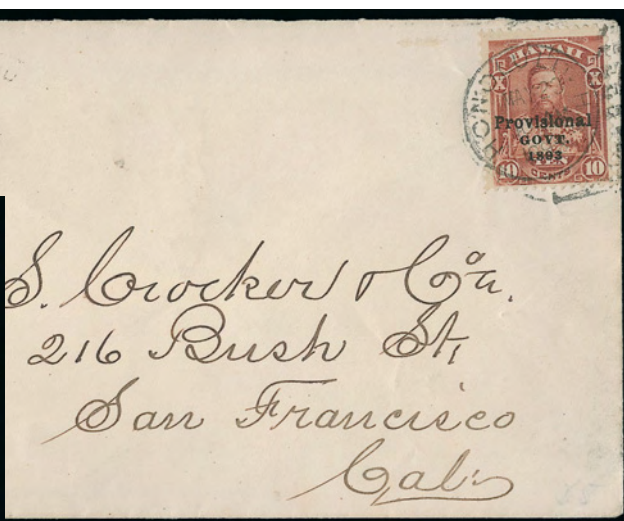 HAWAII
X X
Provisional
GOVT.
1893
10 CENTS 10
HONOLULU
S. Crocker & Co.
216 Bush St,
San Francisco
Cal.